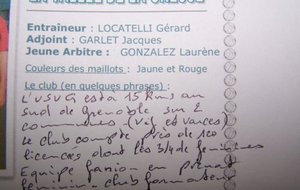 Entraîneur : LOCATELLI Gérard
Adjoint : GARLET Jacques
Jeune Arbitre : GONZALEZ Laurène
Couleurs des maillots : Jaune et Rouge
Le club (en quelques phrases) :
L'USVG est à 15 kms au
sud de Grenoble sur 2
communes (Vif et Varces)
Le club compte près de 120
licences dont les 3/4 de féminines
Equipe fanion en
féminin club formateur